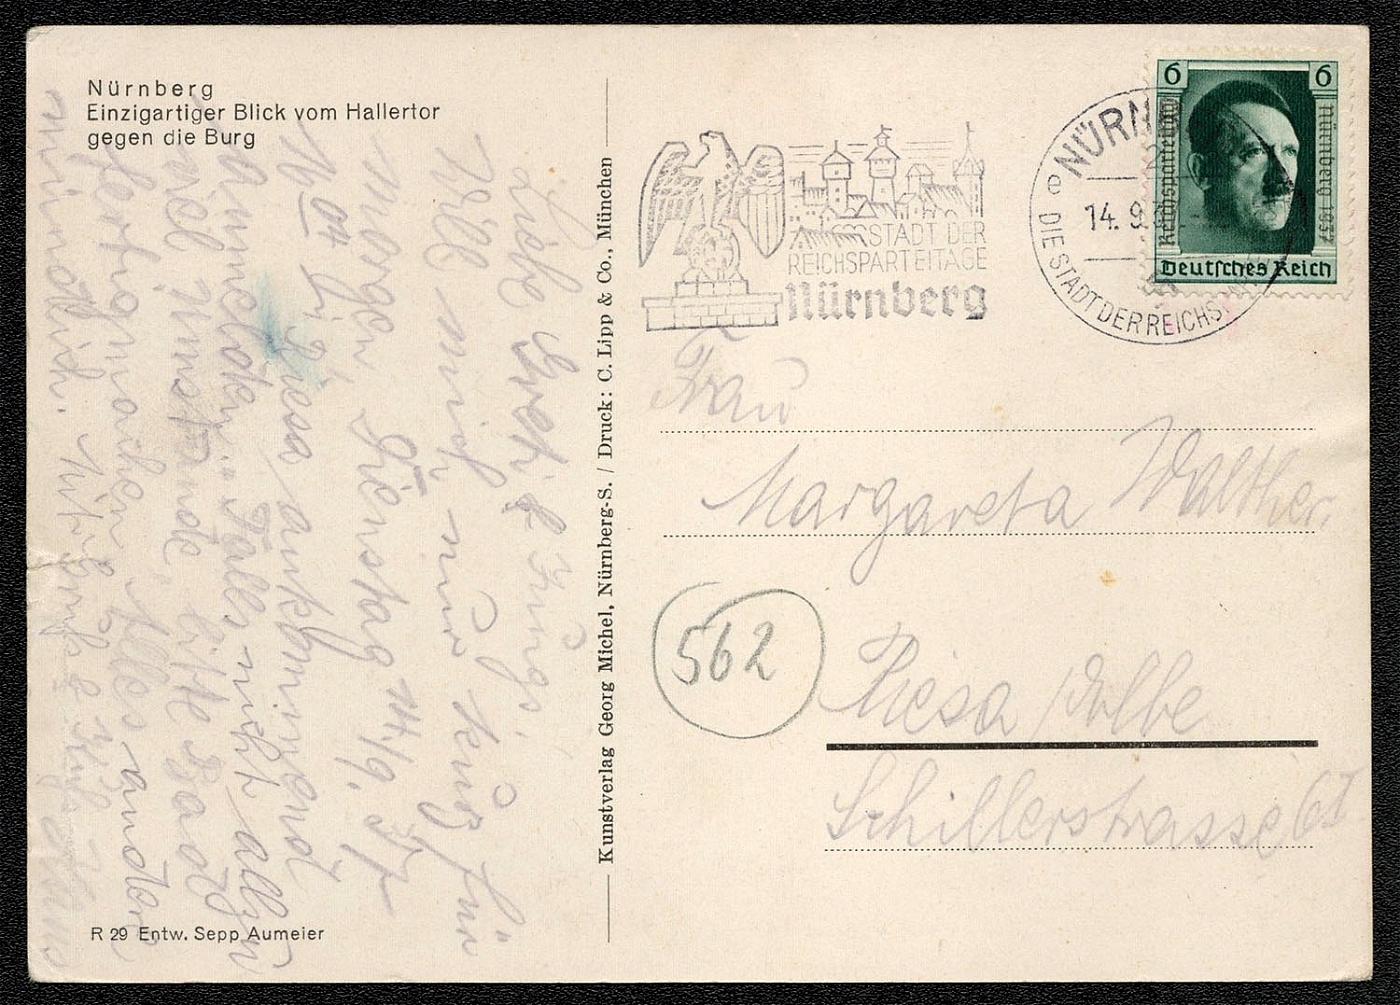 Nürnberg
Einzigartiger Blick vom Hallertor
gegen die Burg
Liebe Gretl & Jungs,
Will mich nur kurz für
morgen Dienstag 14/9. 37
16 04 in Riesa ankommend
anmelden. Falls nicht allzu
viel Umstände bitte Bad
fertigmachen. Alles andere
mündlich.
R 29 Entw. Sepp Aumeier
Kunstverlag Georg Michel, Nürnberg-S. / Druck: C. Lipp & Co., München
STADT DER
REICHSPARTEITAGE
Nürnberg
NÜRN
2
14. 9.
e
DIE STADT DER REICHS
6 6
Reichsparteitag
Nürnberg 1937
Deutsches Reich
Frau
Margareta Walther.
562
Riesa / Elbe
Schillerstrasse 6I